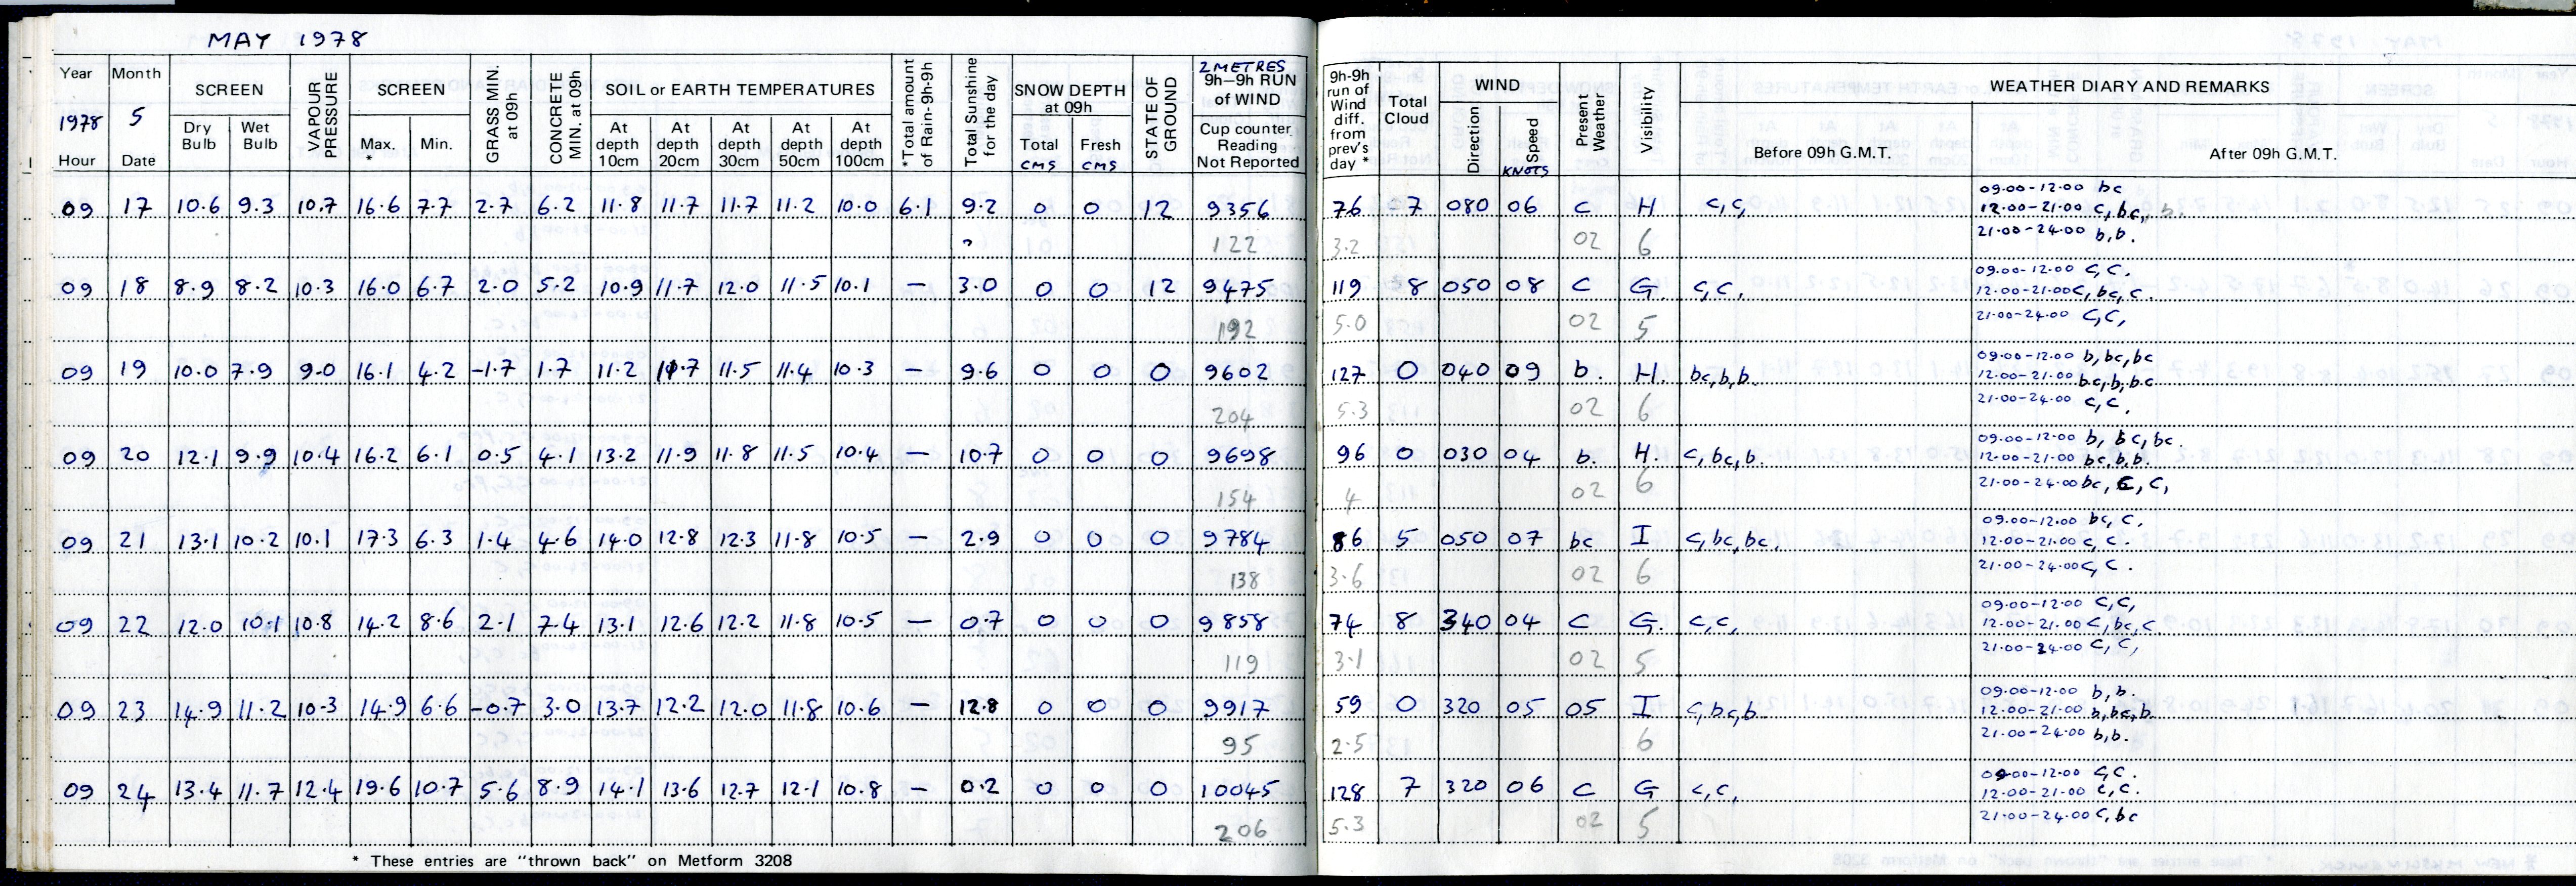 MAY 1978
Year Month SCREEN VAPOUR PRESSURE SCREEN GRASS MIN. at 09h CONCRETE MIN. at 09h SOIL or EARTH TEMPERATURES *Total amount of Rain-9h-9h Total Sunshine for the day SNOW DEPTH at 09h STATE OF GROUND 2 METRES 9h-9h RUN of WIND 9h-9h run of Wind diff. from prev's day * Total Cloud WIND Present Weather Visibility WEATHER DIARY AND REMARKS
1978 5 Dry Bulb Wet Bulb Max. * Min. At depth 10cm At depth 20cm At depth 30cm At depth 50cm At depth 100cm Total CMS Fresh CMS Cup counter Reading Not Reported Direction Speed KNOTS Before 09h G.M.T. After 09h G.M.T.
Hour Date
09 17 10.6 9.3 10.7 16.6 7.7 2.7 6.2 11.8 11.7 11.7 11.2 10.0 6.1 9.2 0 0 12 9356 76 7 080 06 c H c,c,
09.00-12.00 bc
12.00-21.00 c,bc,
21.00-24.00 b,b.
122 3.2 02 6
09 18 8.9 8.2 10.3 16.0 6.7 2.0 5.2 10.9 11.7 12.0 11.5 10.1 — 3.0 0 0 12 9475 119 8 050 08 C G c,c,
09.00-12.00 c,c.
12.00-21.00 c,bc,c.
21.00-24.00 c,c,
192 5.0 02 5
09 19 10.0 7.9 9.0 16.1 4.2 -1.7 1.7 11.2 11.7 11.5 11.4 10.3 — 9.6 0 0 0 9602 127 0 040 09 b. H. bc,b,b.
09.00-12.00 b,bc,bc
12.00-21.00 bc,b,bc
21.00-24.00 c,c.
204 5.3 02 6
09 20 12.1 9.9 10.4 16.2 6.1 0.5 4.1 13.2 11.9 11.8 11.5 10.4 — 10.7 0 0 0 9698 96 0 030 04 b. H. c,bc,b.
09.00-12.00 b, bc,bc.
12.00-21.00 bc,b,b.
21.00-24.00 bc, c, c,
154 4 02 6
09 21 13.1 10.2 10.1 17.3 6.3 1.4 4.6 14.0 12.8 12.3 11.8 10.5 — 2.9 0 0 0 9784 86 5 050 07 bc I c,bc,bc.
09.00-12.00 bc, c.
12.00-21.00 c, c.
21.00-24.00 c, c.
138 3.6 02 6
09 22 12.0 10.1 10.8 14.2 8.6 2.1 7.4 13.1 12.6 12.2 11.8 10.5 — 0.7 0 0 0 9858 74 8 340 04 C G. c,c,
09.00-12.00 c,c,
12.00-21.00 c,bc,c
21.00-24.00 c,c,
119 3.1 02 5
09 23 14.9 11.2 10.3 14.9 6.6 -0.7 3.0 13.7 12.2 12.0 11.8 10.6 — 12.8 0 0 0 9917 59 0 320 05 05 I c,bc,b
09.00-12.00 b,b.
12.00-21.00 b,bc,b.
21.00-24.00 b,b.
95 2.5 6
09 24 13.4 11.7 12.4 19.6 10.7 5.6 8.9 14.1 13.6 12.7 12.1 10.8 — 0.2 0 0 0 10045 128 7 320 06 C G c,c,
09.00-12.00 c,c.
12.00-21.00 c,c.
21.00-24.00 c,bc
206 5.3 02 5
* These entries are "thrown back" on Metform 3208